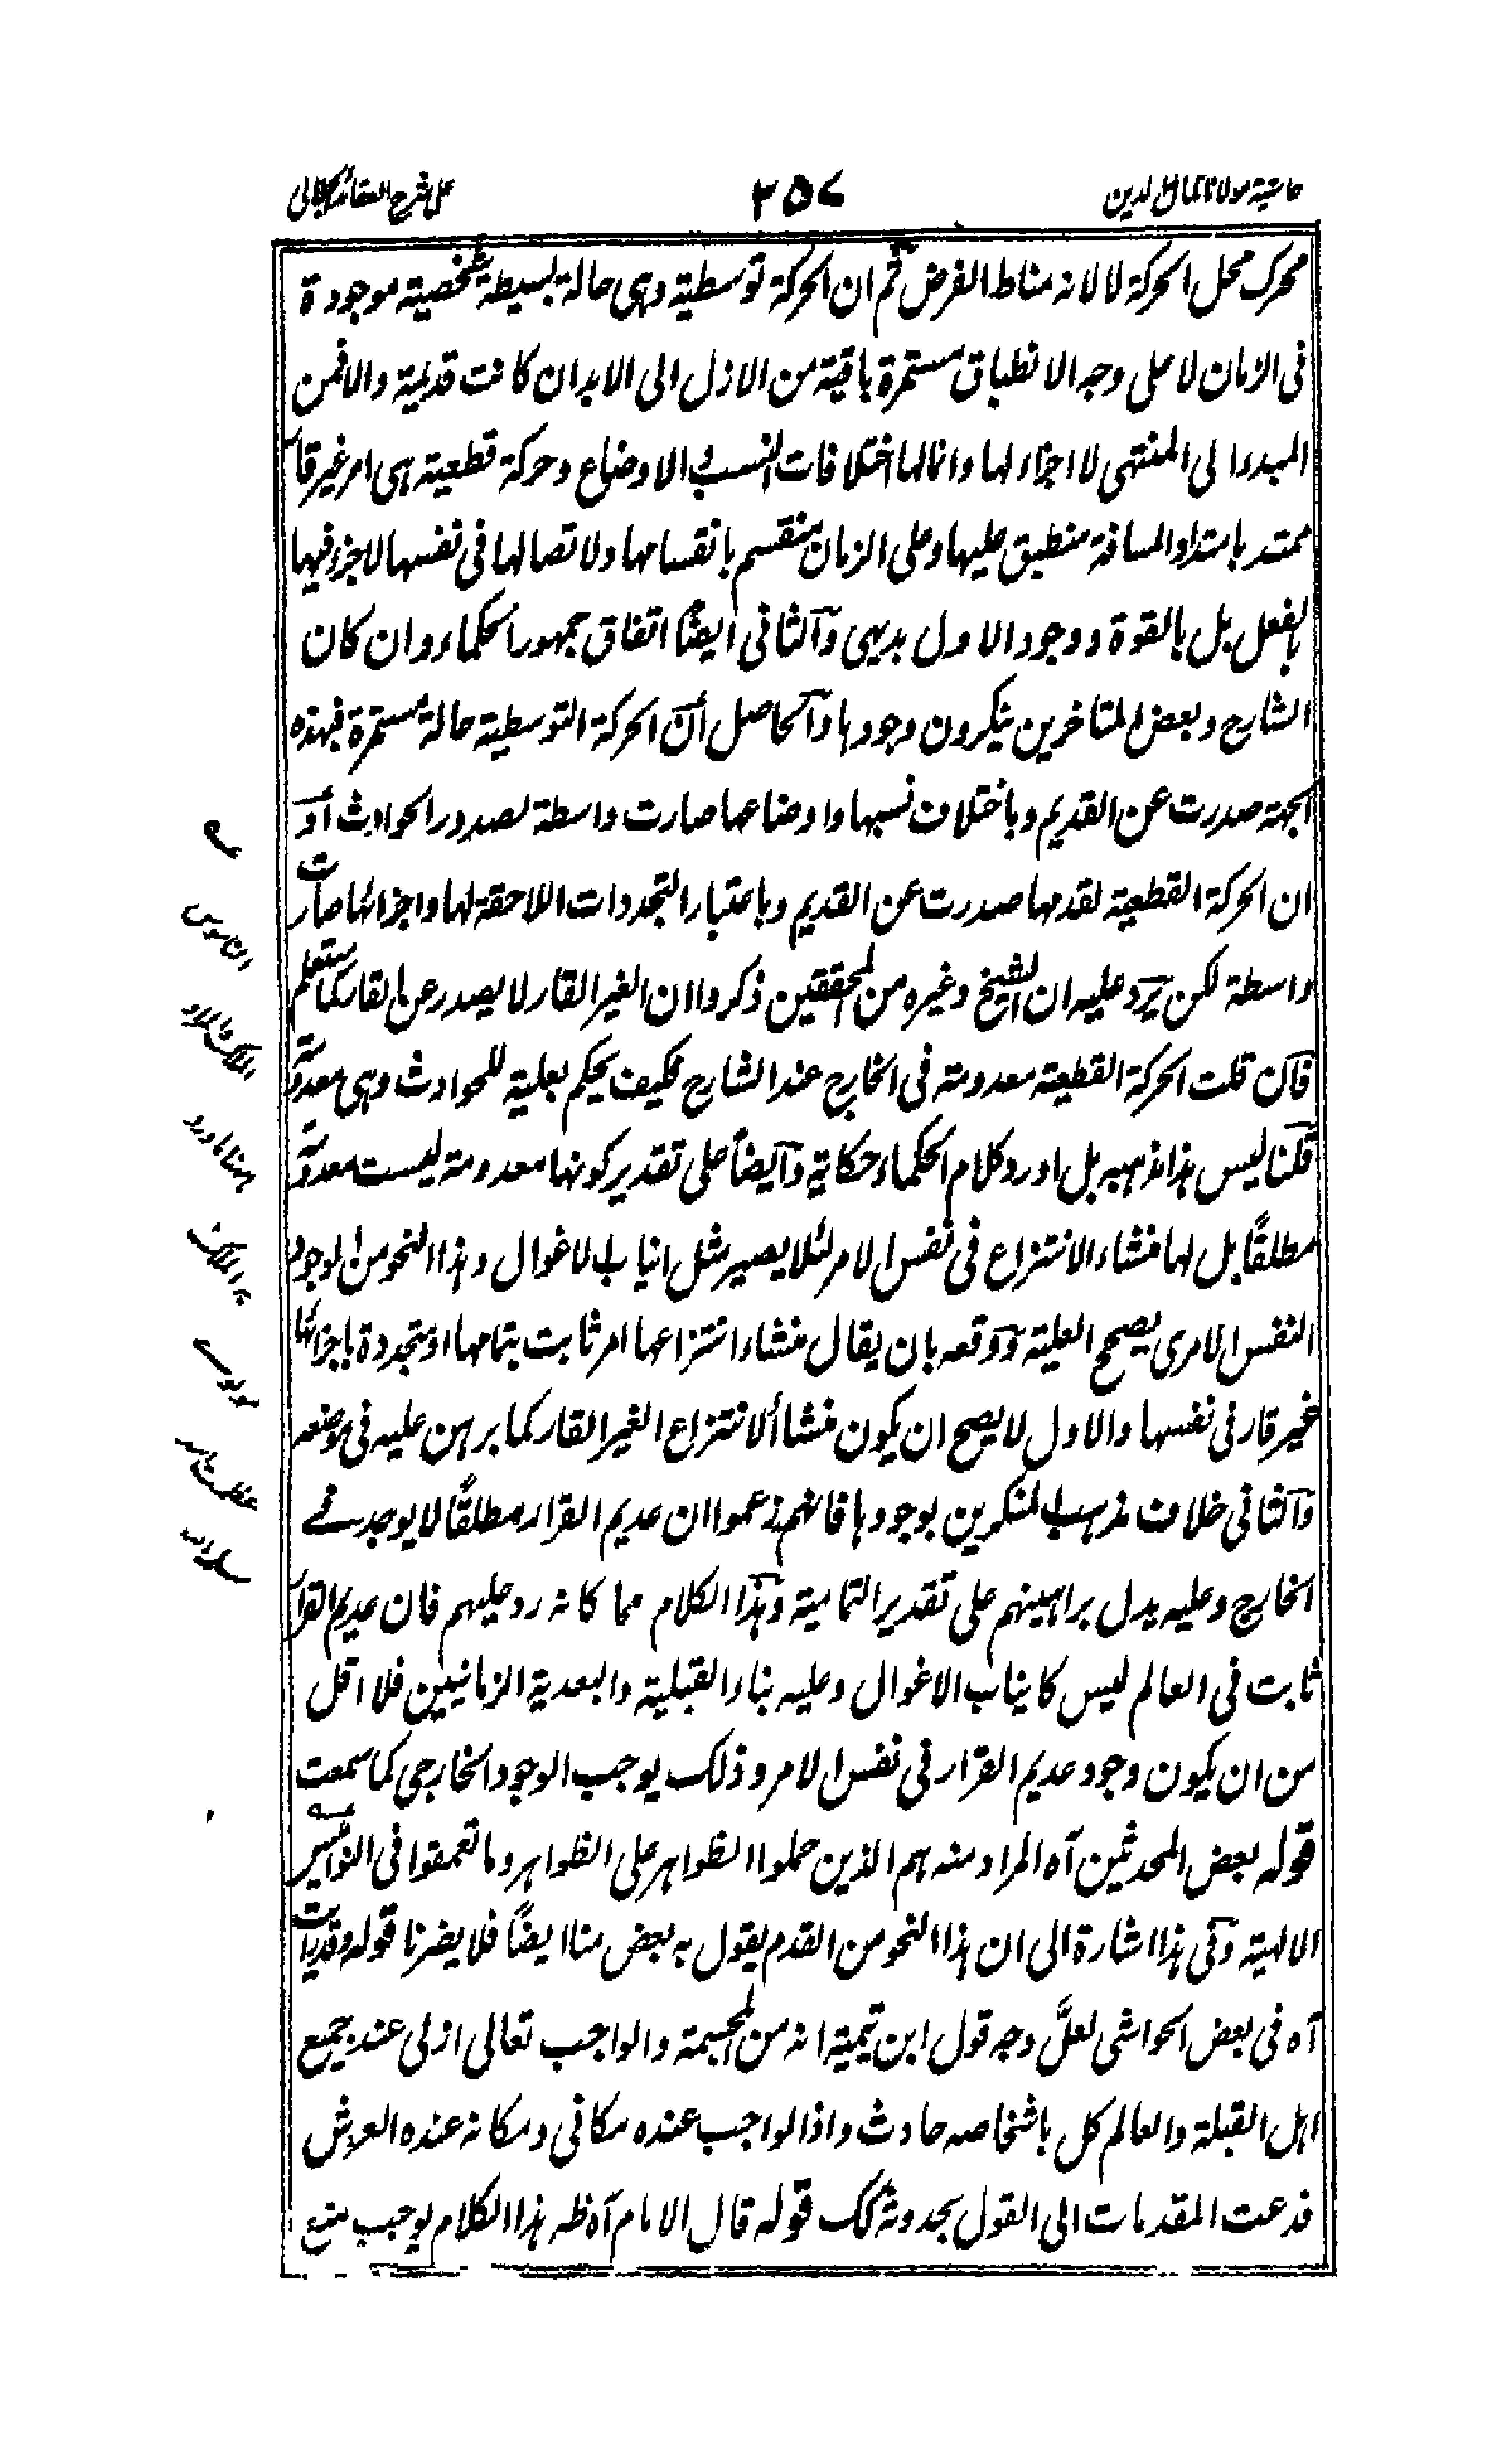 حاشية مولانا كمال الدين
٢٥٧
على شرح العقائد الجلالى
محرك محل الحركة لا لانه مناط الغرض ثم ان الحركة توسطية وهى حالة بسيطة شخصية موجودة
فى الزمان لا على وجه الانطباق مستمرة باقية من الازل الى الابد ان كانت قديمة والا فمن
المبدء الى المنتهى لا اجزاء لها وانما لها اختلافات النسب و الاوضاع وحركة قطعية هى امر غير قار
ممتد بامتداد المسافة منطبق عليها وعلى الزمان منقسم بانقسامها ولاتصالها فى نفسها لا جزء فيها
بالفعل بل بالقوة ووجود الاول بديهى والثانى ايضًا اتفاق جمهور الحكماء وان كان
الشارح وبعض المتاخرين ينكرون وجودها والحاصل أن الحركة التوسطية حالة مستمرة فبهذه
الجهة صدرت عن القديم وباختلاف نسبها واوضاعها صارت واسطة لصدور الحوادث أو
ان الحركة القطعية لقدمها صدرت عن القديم وباعتبار التجددات اللاحقة لها واجزائها صارت
واسطة لكن يرد عليه ان الشيخ وغيره من المحققين ذكروا ان الغير القار لا يصدر عن القار كما ستعلم
فان قلت الحركة القطعية معدومة فى الخارج عند الشارح فكيف يحكم بعلية للحوادث وهى معدومة
قلنا ليس هذا مذهبه بل اورد كلام الحكماء حكاية وايضاً على تقدير كونها معدومة ليست معدومة
مطلقًا بل لها منشاء الانتزاع فى نفس الامر لئلا يصير مثل انياب الاغوال وهذا النحو من الوجود
النفس الامرى يصحح العلية ودفعه بان يقال منشاء انتزاعها امر ثابت بتمامها او متجددة باجزائها
غير قار فى نفسها والاول لا يصح ان يكون منشأ لانتزاع الغير القار كما برهن عليه فى موضعه
والثانى خلاف مذهب المنكرين بوجودها فانهم زعموا ان عديم القرار مطلقًا لا يوجد فى
الخارج وعليه يدل براهينهم على تقدير التمامية وهذا الكلام مما كانه رد عليهم فان عديم القرار
ثابت فى العالم ليس كانياب الاغوال وعليه بناء القبلية والبعدية الزمانيين فلا اقل
من ان يكون وجود عديم القرار فى نفس الامر وذلك يوجب الوجود الخارجى كما سمعت
قوله بعض المحدثين آه المراد منه هم الذين حملوا الظواهر على الظواهر وما تعمقوا فى النواميس
الالهية وفى هذا اشارة الى ان هذا النحو من القدم يقول به بعض منا ايضًا فلا يضرنا قوله وقد رايت
آه فى بعض الحواشى لعلَّ وجه قول ابن تيمية انه من المجسمة والواجب تعالى ازلى عند جميع
اهل القبلة والعالم كل باشخاصه حادث واذا لواجب عنده مكانى ومكانه عنده العرش
فدعت المقدمات الى القول بحدوثه كك قوله قال الامام آه ظ هذا الكلام يوجب منع